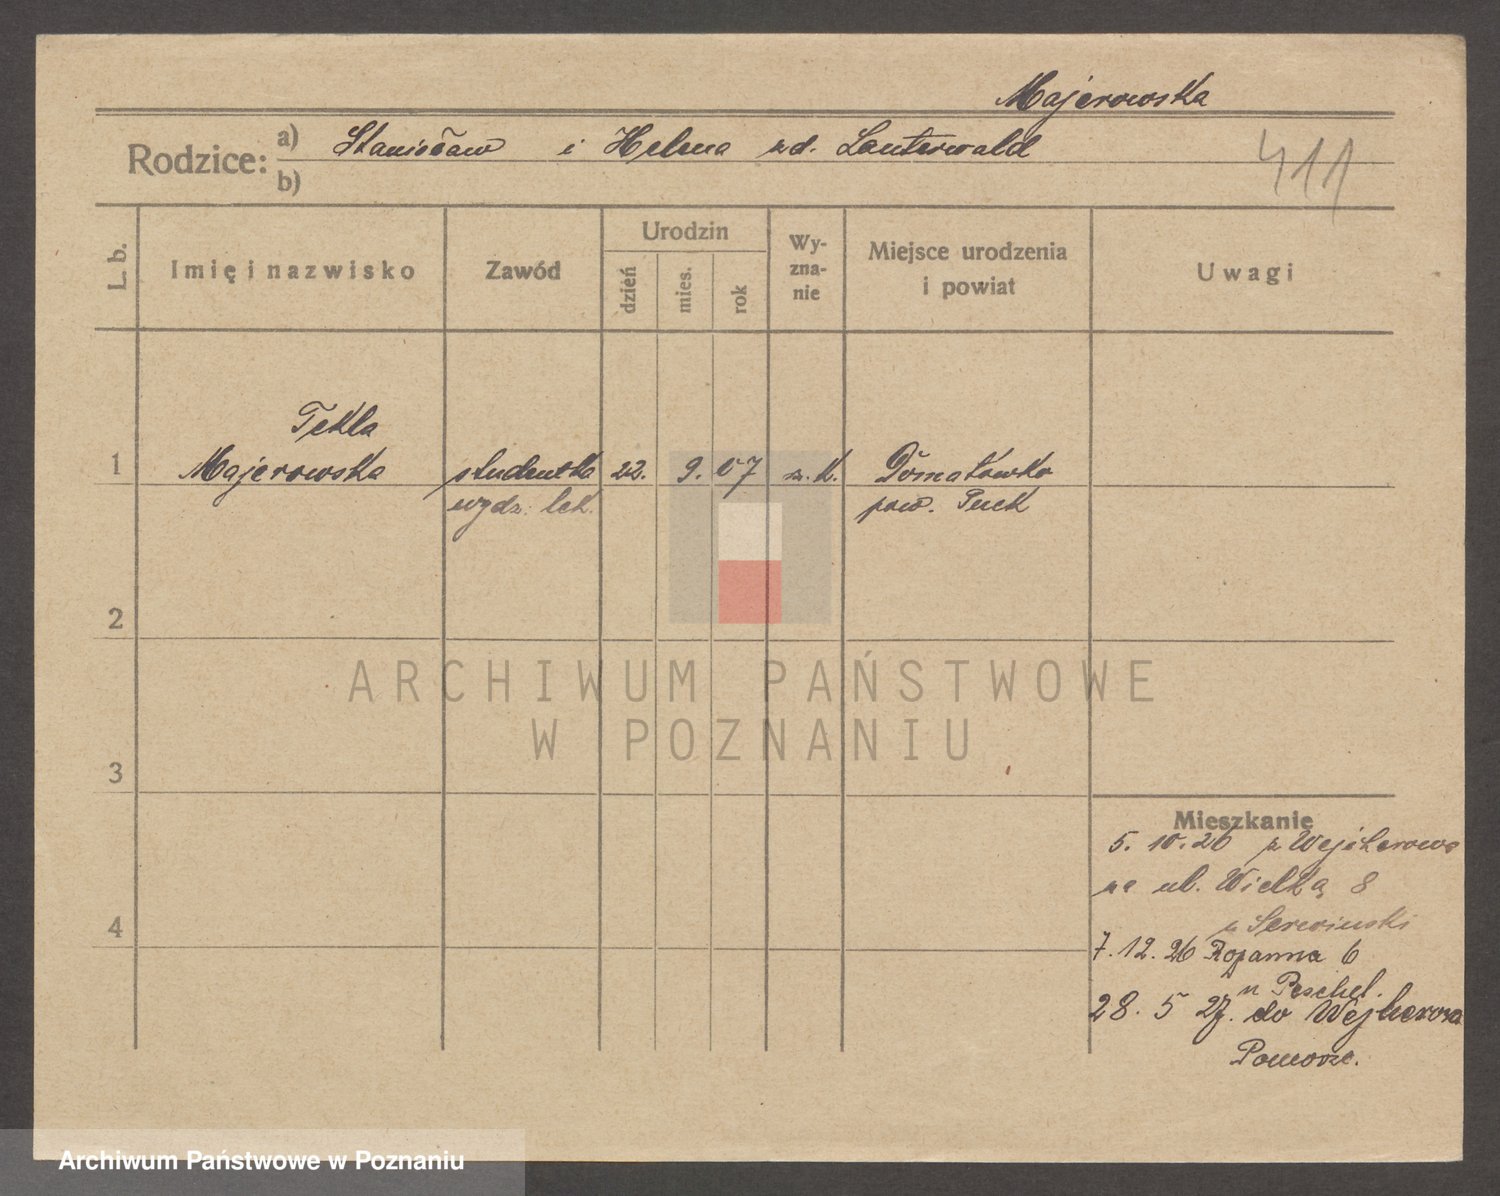 Majerowska
Rodzice: a) Stanisław i Helena zd. Lauterwald
b)
411
L. b.
Imię i nazwisko
Zawód
Urodzin
dzień
mies.
rok
Wy-
zna-
nie
Miejsce urodzenia
i powiat
Uwagi
Tekla
1 Majerowska studentka 22. 9. 07 rz. k. Domatówko
wydz. lek. pow. Puck
2
ARCHIWUM PAŃSTWOWE
W POZNANIU
3
Mieszkanie
5. 10. 26 z Wejherowo
na ul. Wielką 8
4
7. 12. 26 Różanna 6
u Peschel.
28. 5 27. do Wejherowa
Pomorze.
Archiwum Państwowe w Poznaniu